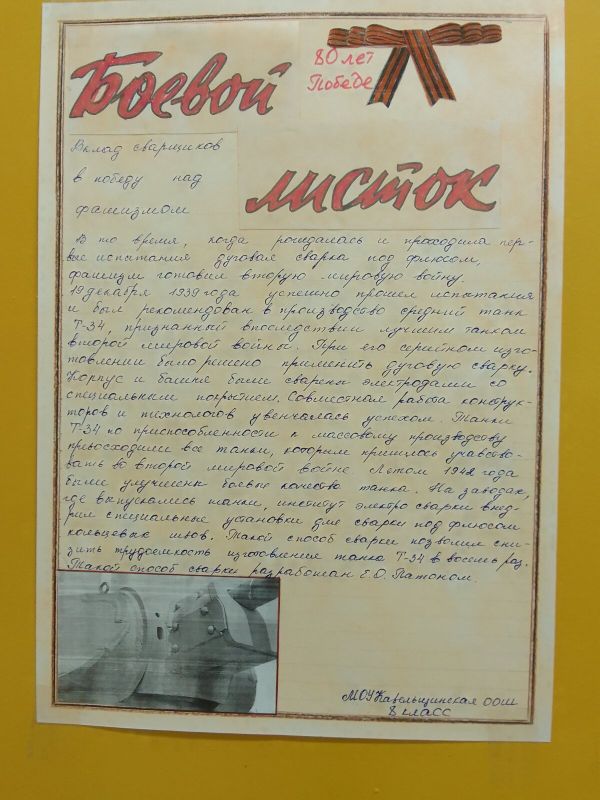 Боевой
80 лет
Победе
листок
Вклад сварщиков
в победу над
фашизмом
В то время, когда рождалась и проходила пер-
вые испытания дуговая сварка под флюсом,
фашизм готовил вторую мировую войну.
19 декабря 1939 года успешно прошел испытания
и был рекомендован в производство средний танк
Т-34, признанный впоследствии лучшим танком
второй мировой войны. При его серийном изго-
товлении было решено применить дуговую сварку.
Корпус и башня были сварены электродами со
специальным покрытием. Совместная работа конструк-
торов и технологов увенчалась успехом. Танки
Т-34 по приспособленности к массовому производству
превосходили все танки, которым пришлось учавство-
вать во второй мировой войне. Летом 1942 года
были улучшены боевые качества танка. На заводах,
где выпускались танки, институт электро сварки внед-
рил специальные установки для сварки под флюсом
кольцевых швов. Такой способ сварки позволил сни-
зить трудоемкость изготовления танка Т-34 в восемь раз.
Такой способ сварки разработан Е.О. Патоном.
МОУ Кабельщинская ООШ
8 класс